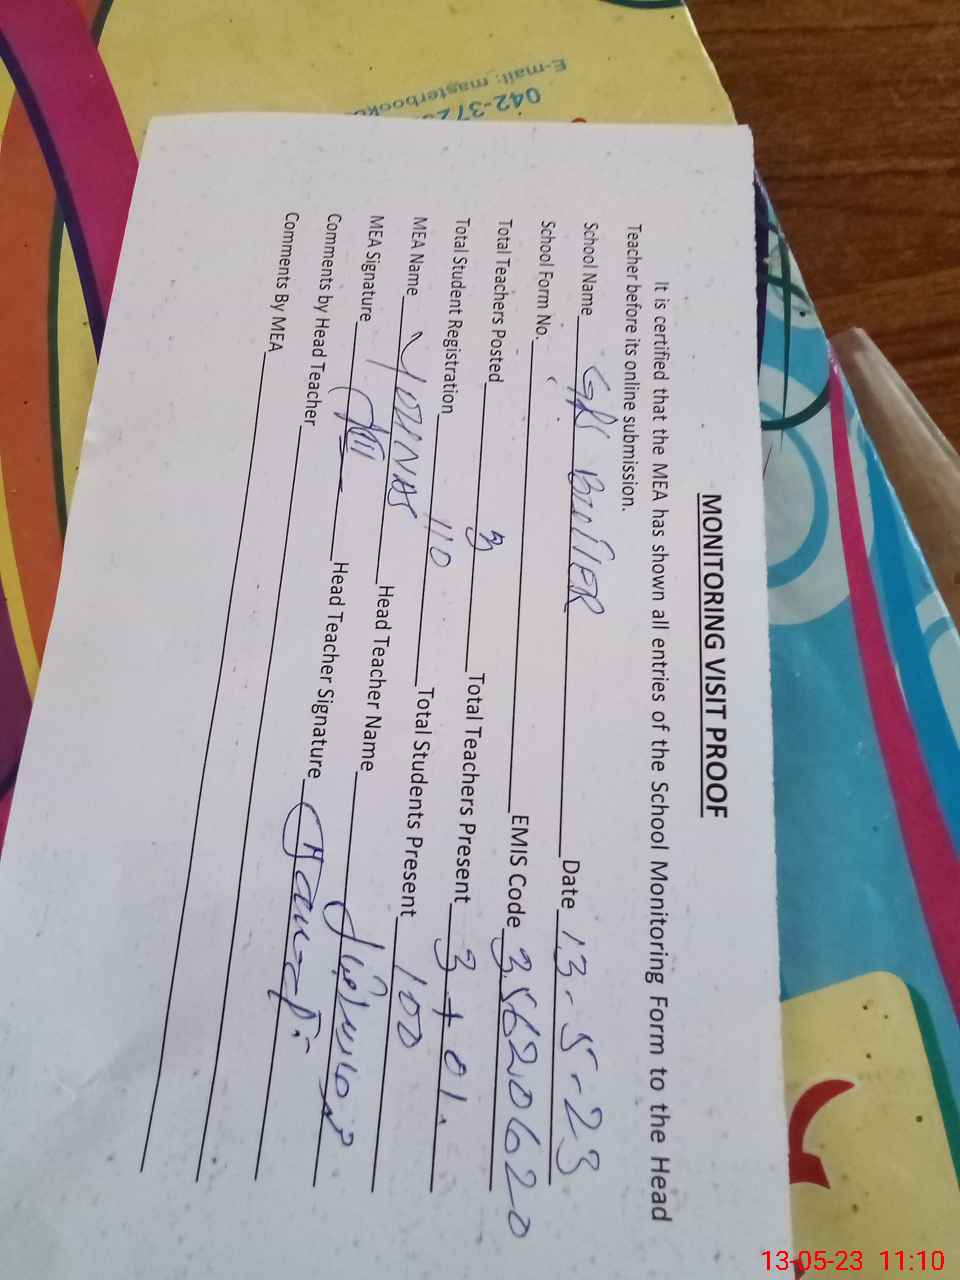 E-mail: masterbooks
042-372
MONITORING VISIT PROOF
It is certified that the MEA has shown all entries of the School Monitoring Form to the Head
Teacher before its online submission.
School Name Date 13-5-23
School Form No. EMIS Code 35620620
Total Teachers Posted 3 Total Teachers Present 3+01
Total Student Registration 110 Total Students Present 100
MEA Name YOUNAS Head Teacher Name
MEA Signature Head Teacher Signature
Comments by Head Teacher
Comments By MEA
13-05-23 11:10